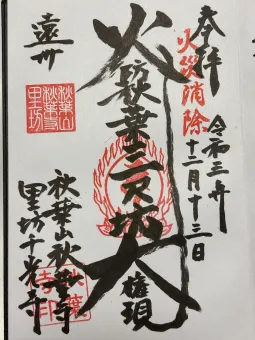 奉拝
火災消除
令和三年
十二月十三日
火防秋葉三尺坊大権現
遠州
秋葉山
秋葉寺
里坊
秋葉山秋葉寺
里坊千光寺